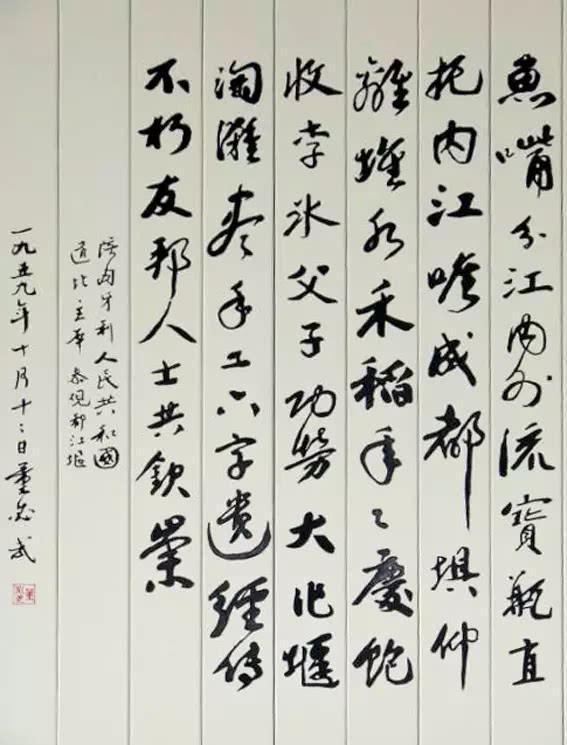 魚嘴分江內外流寶瓶直
扼內江喉成都埧仰
離堆水禾稻年々慶飽
收李冰父子功勞大作堰
淘灘盡手工六字遺經傳
不朽友邦人士共欽崇
陪匈牙利人民共和國
道比主席參觀都江堰
一九五九年十月十二日董必武